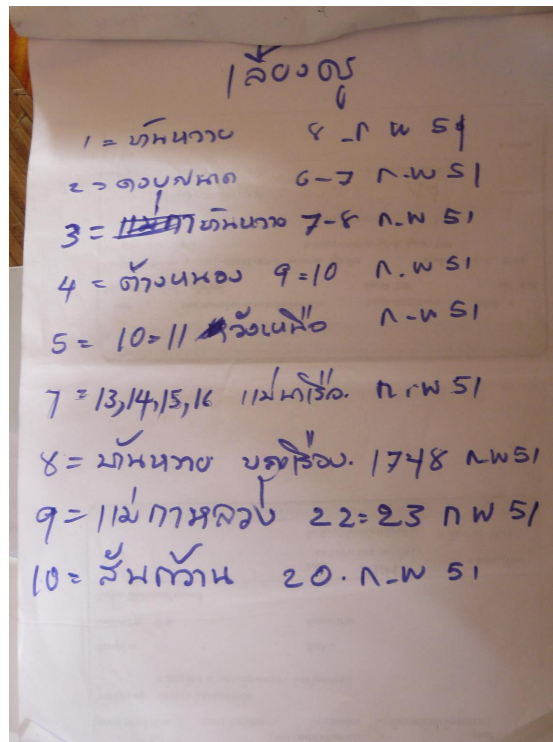 เลี้ยงลู
1 = บ้านหวาย 8 - ก พ 51
2 = ดงบุญนาค 6-7 ก-พ 51
3 = บ้านหวาย 7-8 ก.พ 51
4 = ต๊างหนอง 9=10 ก.พ 51
5 = 10=11 วังเหนือ ก-พ 51
7 = 13,14,15,16 แม่นาเรือ. ก.พ 51
8 = บ้านหวาย บุญเรือง. 1748 ก-พ 51
9 = แม่กาหลวง 22=23 ก พ 51
10 = สันกว๊าน 20. ก-พ 51